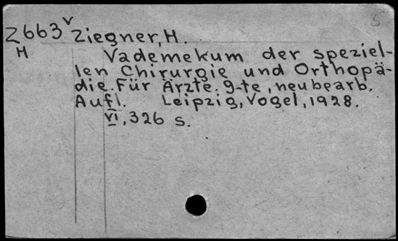 5
Z663v Ziegner, H.
H Vademekum der speziel-
len Chirurgie und Orthopä-
die. Für Ärzte. 9-te, neubearb.
Aufl. Leipzig, Vogel, 1928.
VI, 326 s.